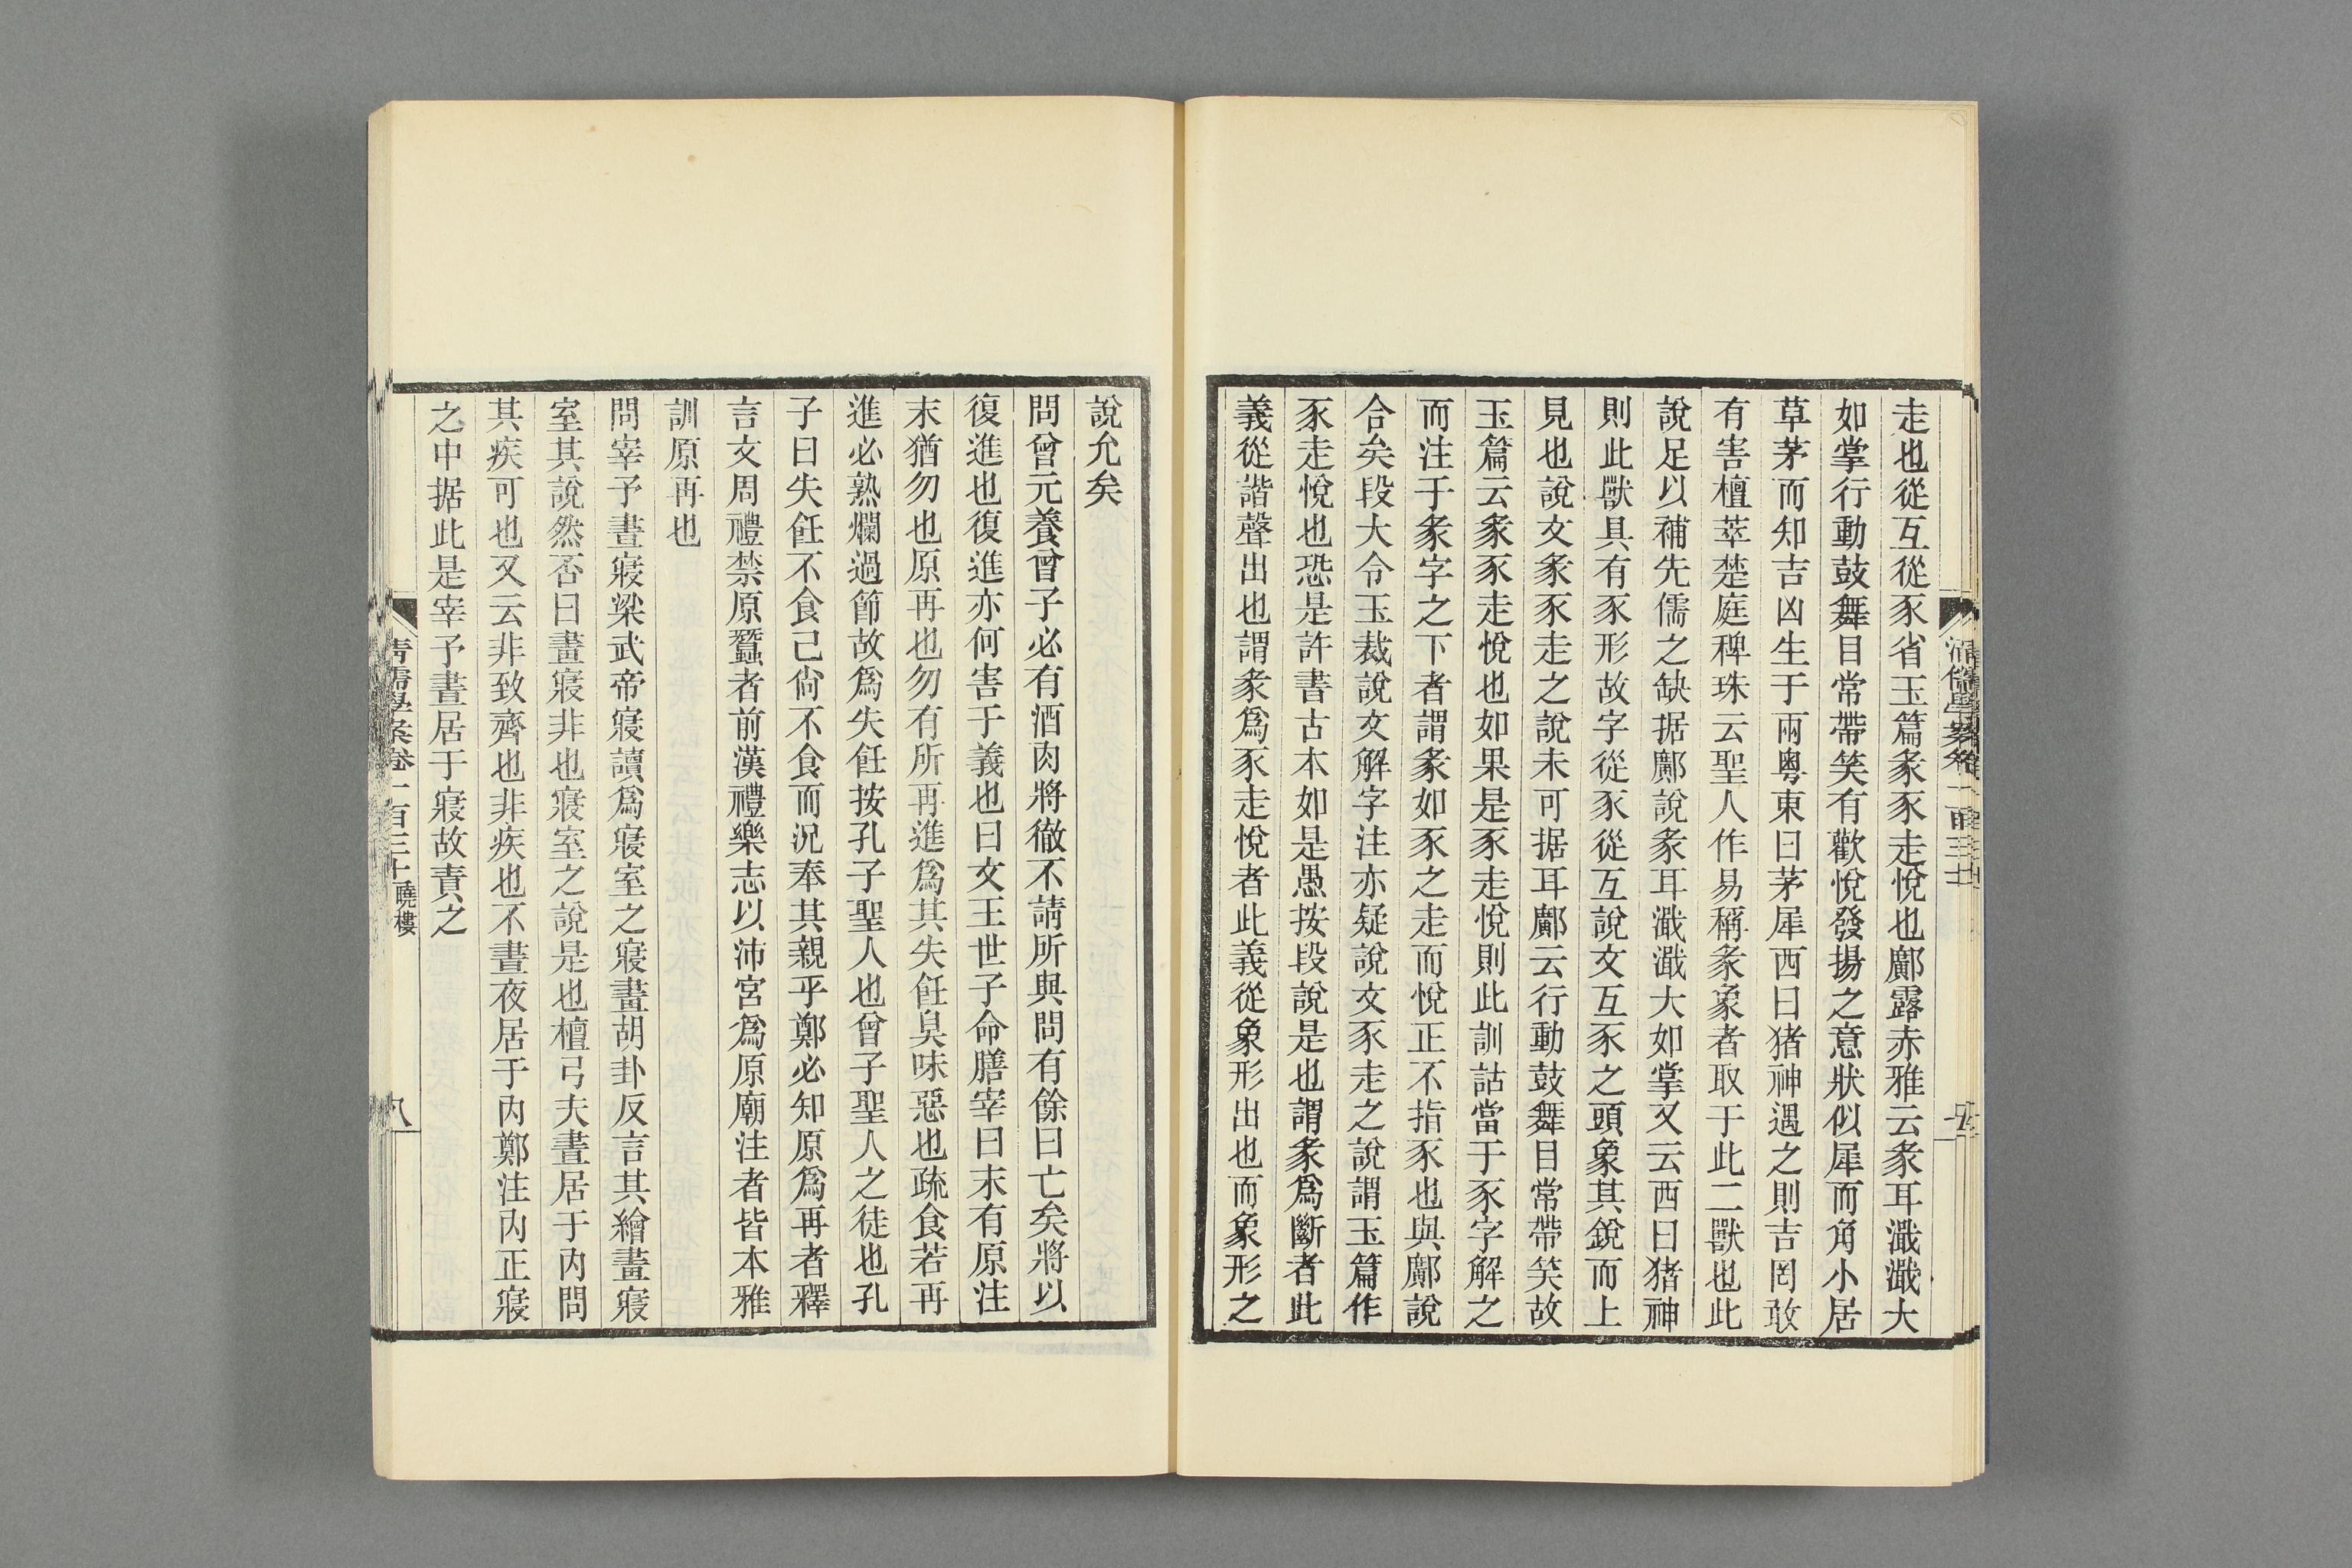 走也從互從豕省玉篇彖豕走悅也鄺露赤雅云彖耳瀐瀐大
如掌行動鼓舞目常帶笑有歡悅發揚之意狀似犀而角小居
草茅而知吉凶生于兩粵東曰茅犀西曰猪神遇之則吉罔敢
有害檀萃楚庭稗珠云聖人作易稱彖象者取于此二獸也此
說足以補先儒之缺据鄺說彖耳瀐瀐大如掌又云西曰猪神
則此獸具有豕形故字從豕從互說文互豕之頭象其銳而上
見也說文彖豕走之說未可据耳鄺云行動鼓舞目常帶笑故
玉篇云彖豕走悅也如果是豕走悅則此訓詁當于豕字解之
而注于彖字之下者謂彖如豕之走而悅正不指豕也與鄺說
合矣段大令玉裁說文解字注亦疑說文豕走之說謂玉篇作
豕走悅也恐是許書古本如是愚按段說是也謂彖爲斷者此
義從諧聲出也謂彖爲豕走悅者此義從象形出也而象形之
說允矣
問曾元養曾子必有酒肉將徹不請所與問有餘曰亡矣將以
復進也復進亦何害于義也曰文王世子命膳宰曰末有原注
末猶勿也原再也勿有所再進爲其失飪臭味惡也疏食若再
進必熟爛過節故爲失飪按孔子聖人也曾子聖人之徒也孔
子曰失飪不食己尙不食而況奉其親乎鄭必知原爲再者釋
言文周禮禁原蠶者前漢禮樂志以沛宮爲原廟注者皆本雅
訓原再也
問宰予晝寢梁武帝寢讀爲寢室之寢畫胡卦反言其繪畫寢
室其說然否曰畫寢非也寢室之說是也檀弓夫晝居于內問
其疾可也又云非致齊也非疾也不晝夜居于內鄭注內正寢
之中据此是宰予晝居于寢故責之
清儒學案卷一百三十 曉樓
八